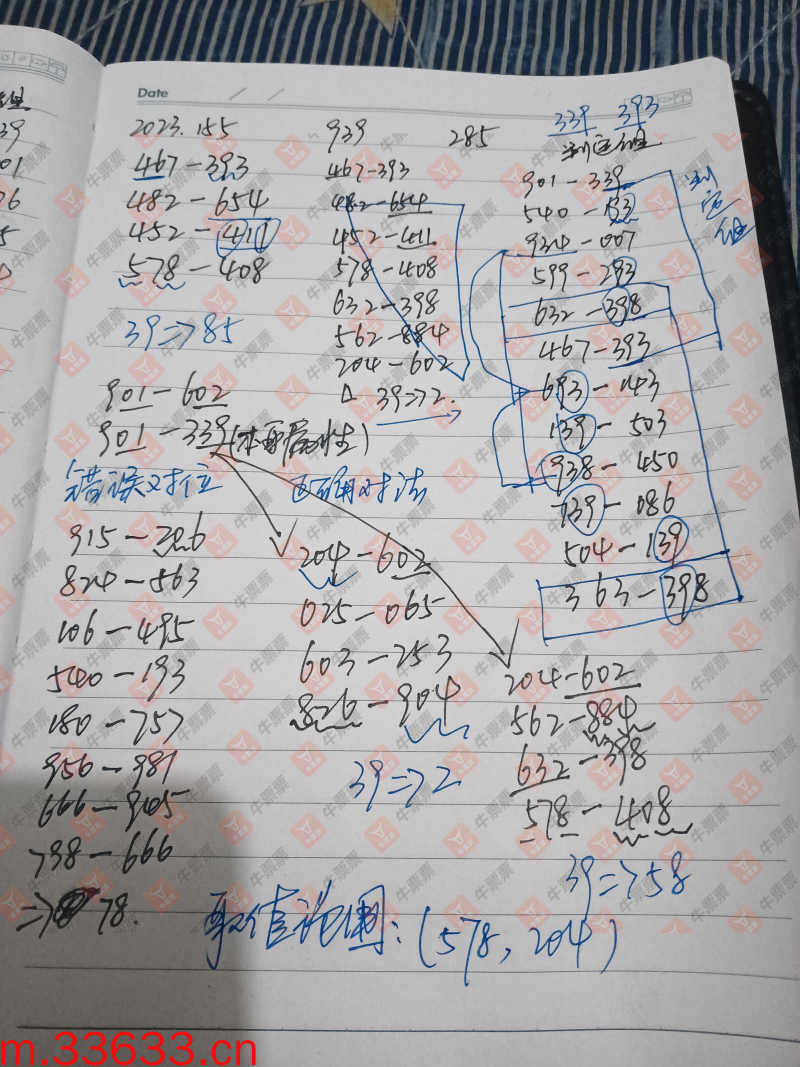 Date
2023.155
467-393
482-654
452-411
578-408
39=>85
901-602
901-339
错误对位
915-226
824-563
106-495
540-193
180-757
956-981
666-905
798-666
=>78.
939
467-393
482-654
452-411
578-408
632-398
562-884
204-602
39=>2.
正确对法
204-602
025-065
603-253
826-904
39=>2
285
339 393
901-339
540-193
924-007
599-293
632-398
467-393
693-143
139-503
938-450
739-086
504-139
363-398
204-602
562-884
632-398
578-408
39=>58
取值范围:(578,204)
39
01
76
5
牛票票
m.33633.cn